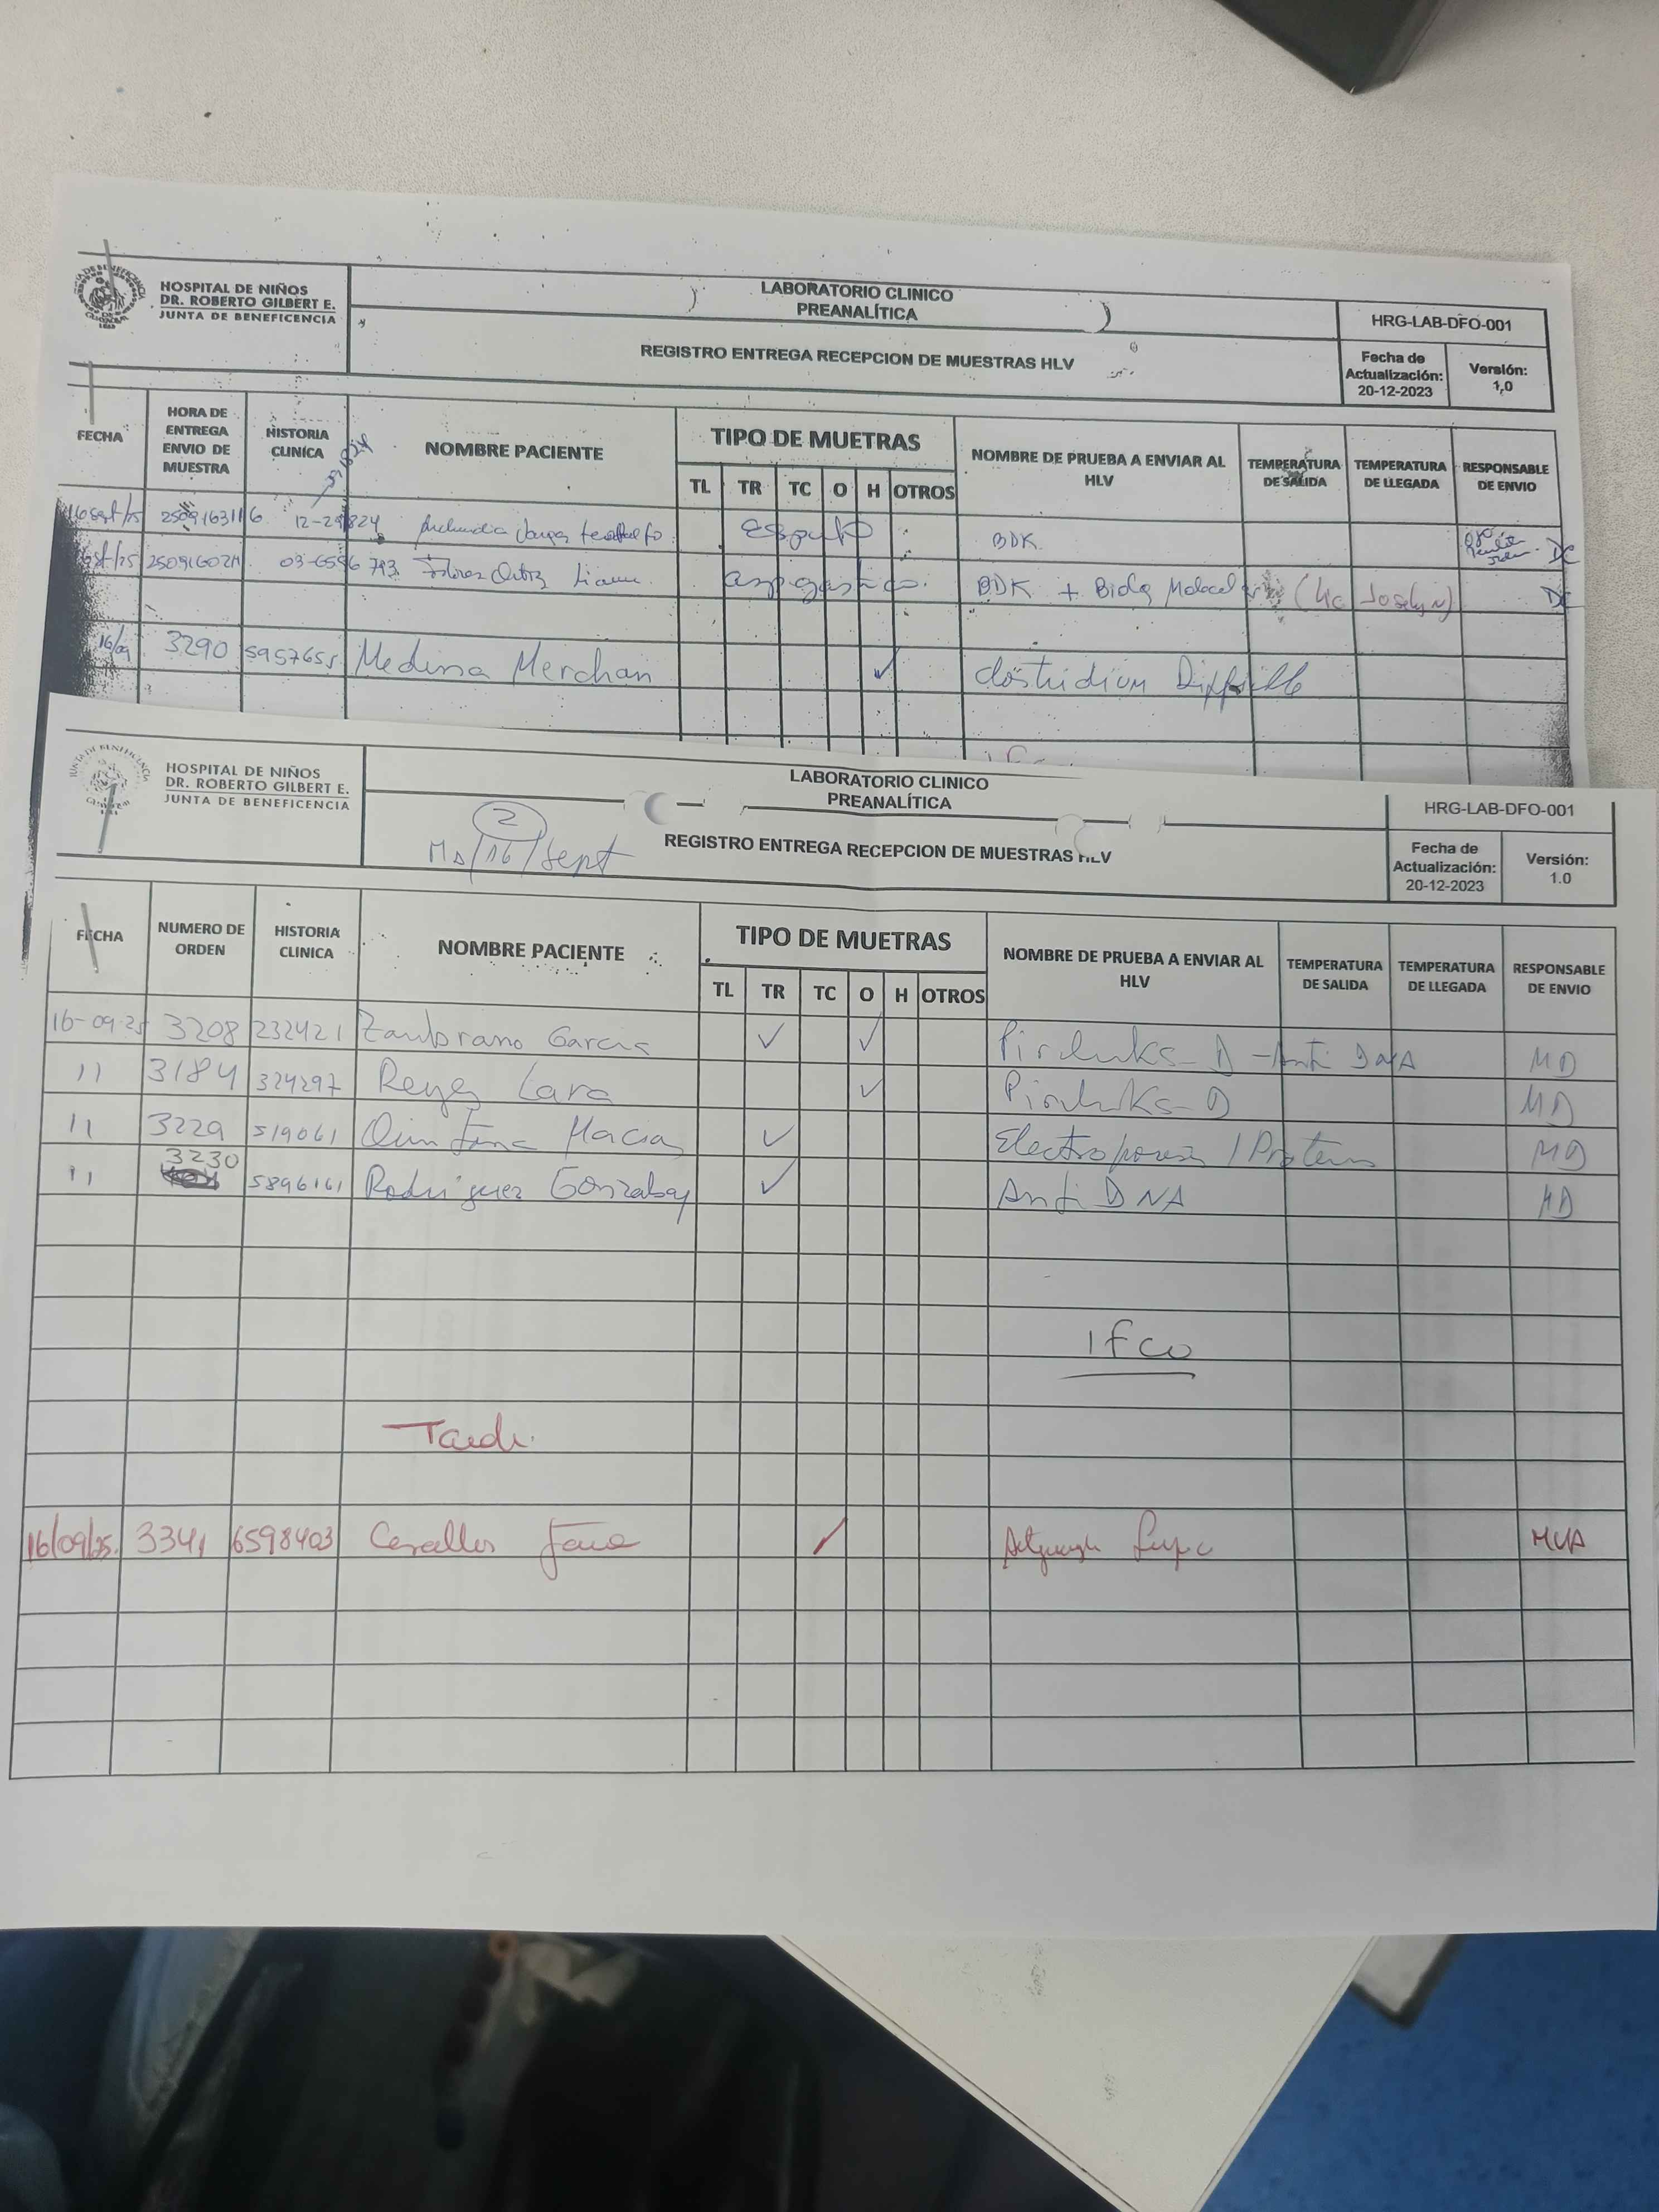 HOSPITAL DE NIÑOS
DR. ROBERTO GILBERT E.
JUNTA DE BENEFICENCIA
LABORATORIO CLINICO
PREANALÍTICA
REGISTRO ENTREGA RECEPCION DE MUESTRAS HLV
HRG-LAB-DFO-001
Fecha de Actualización: 20-12-2023
Versión: 1,0
FECHA HORA DE ENTREGA ENVIO DE MUESTRA HISTORIA CLINICA NOMBRE PACIENTE TIPO DE MUETRAS NOMBRE DE PRUEBA A ENVIAR AL HLV TEMPERATURA DE SALIDA TEMPERATURA DE LLEGADA RESPONSABLE DE ENVIO
TL TR TC O H OTROS
16 sept/25 12-29824 Vargas esputo BDK DC
03-6596793 Flores Ortiz BDK + Biolog Molecul (Lic Joselyn) DC
16/09 3290 5957655 Medina Merchan ✓ Clostridium Difficille
HOSPITAL DE NIÑOS
DR. ROBERTO GILBERT E.
JUNTA DE BENEFICENCIA
LABORATORIO CLINICO
PREANALÍTICA
2
16/Sept
REGISTRO ENTREGA RECEPCION DE MUESTRAS HLV
HRG-LAB-DFO-001
Fecha de Actualización: 20-12-2023
Versión: 1.0
FECHA NUMERO DE ORDEN HISTORIA CLINICA NOMBRE PACIENTE TIPO DE MUETRAS NOMBRE DE PRUEBA A ENVIAR AL HLV TEMPERATURA DE SALIDA TEMPERATURA DE LLEGADA RESPONSABLE DE ENVIO
TL TR TC O H OTROS
16-09-25 3208 232421 Zambrano Garcia ✓ ✓ - Anti DNA MD
11 3184 324297 Reyes Lara ✓ MD
11 3229 519061 Quintana Macias ✓ MD
11 3230 5896161 Rodriguez Gonzabay ✓ Anti DNA MD
Tarde.
16/09/25. 3341 6598403 Cevallos ✓ MVA